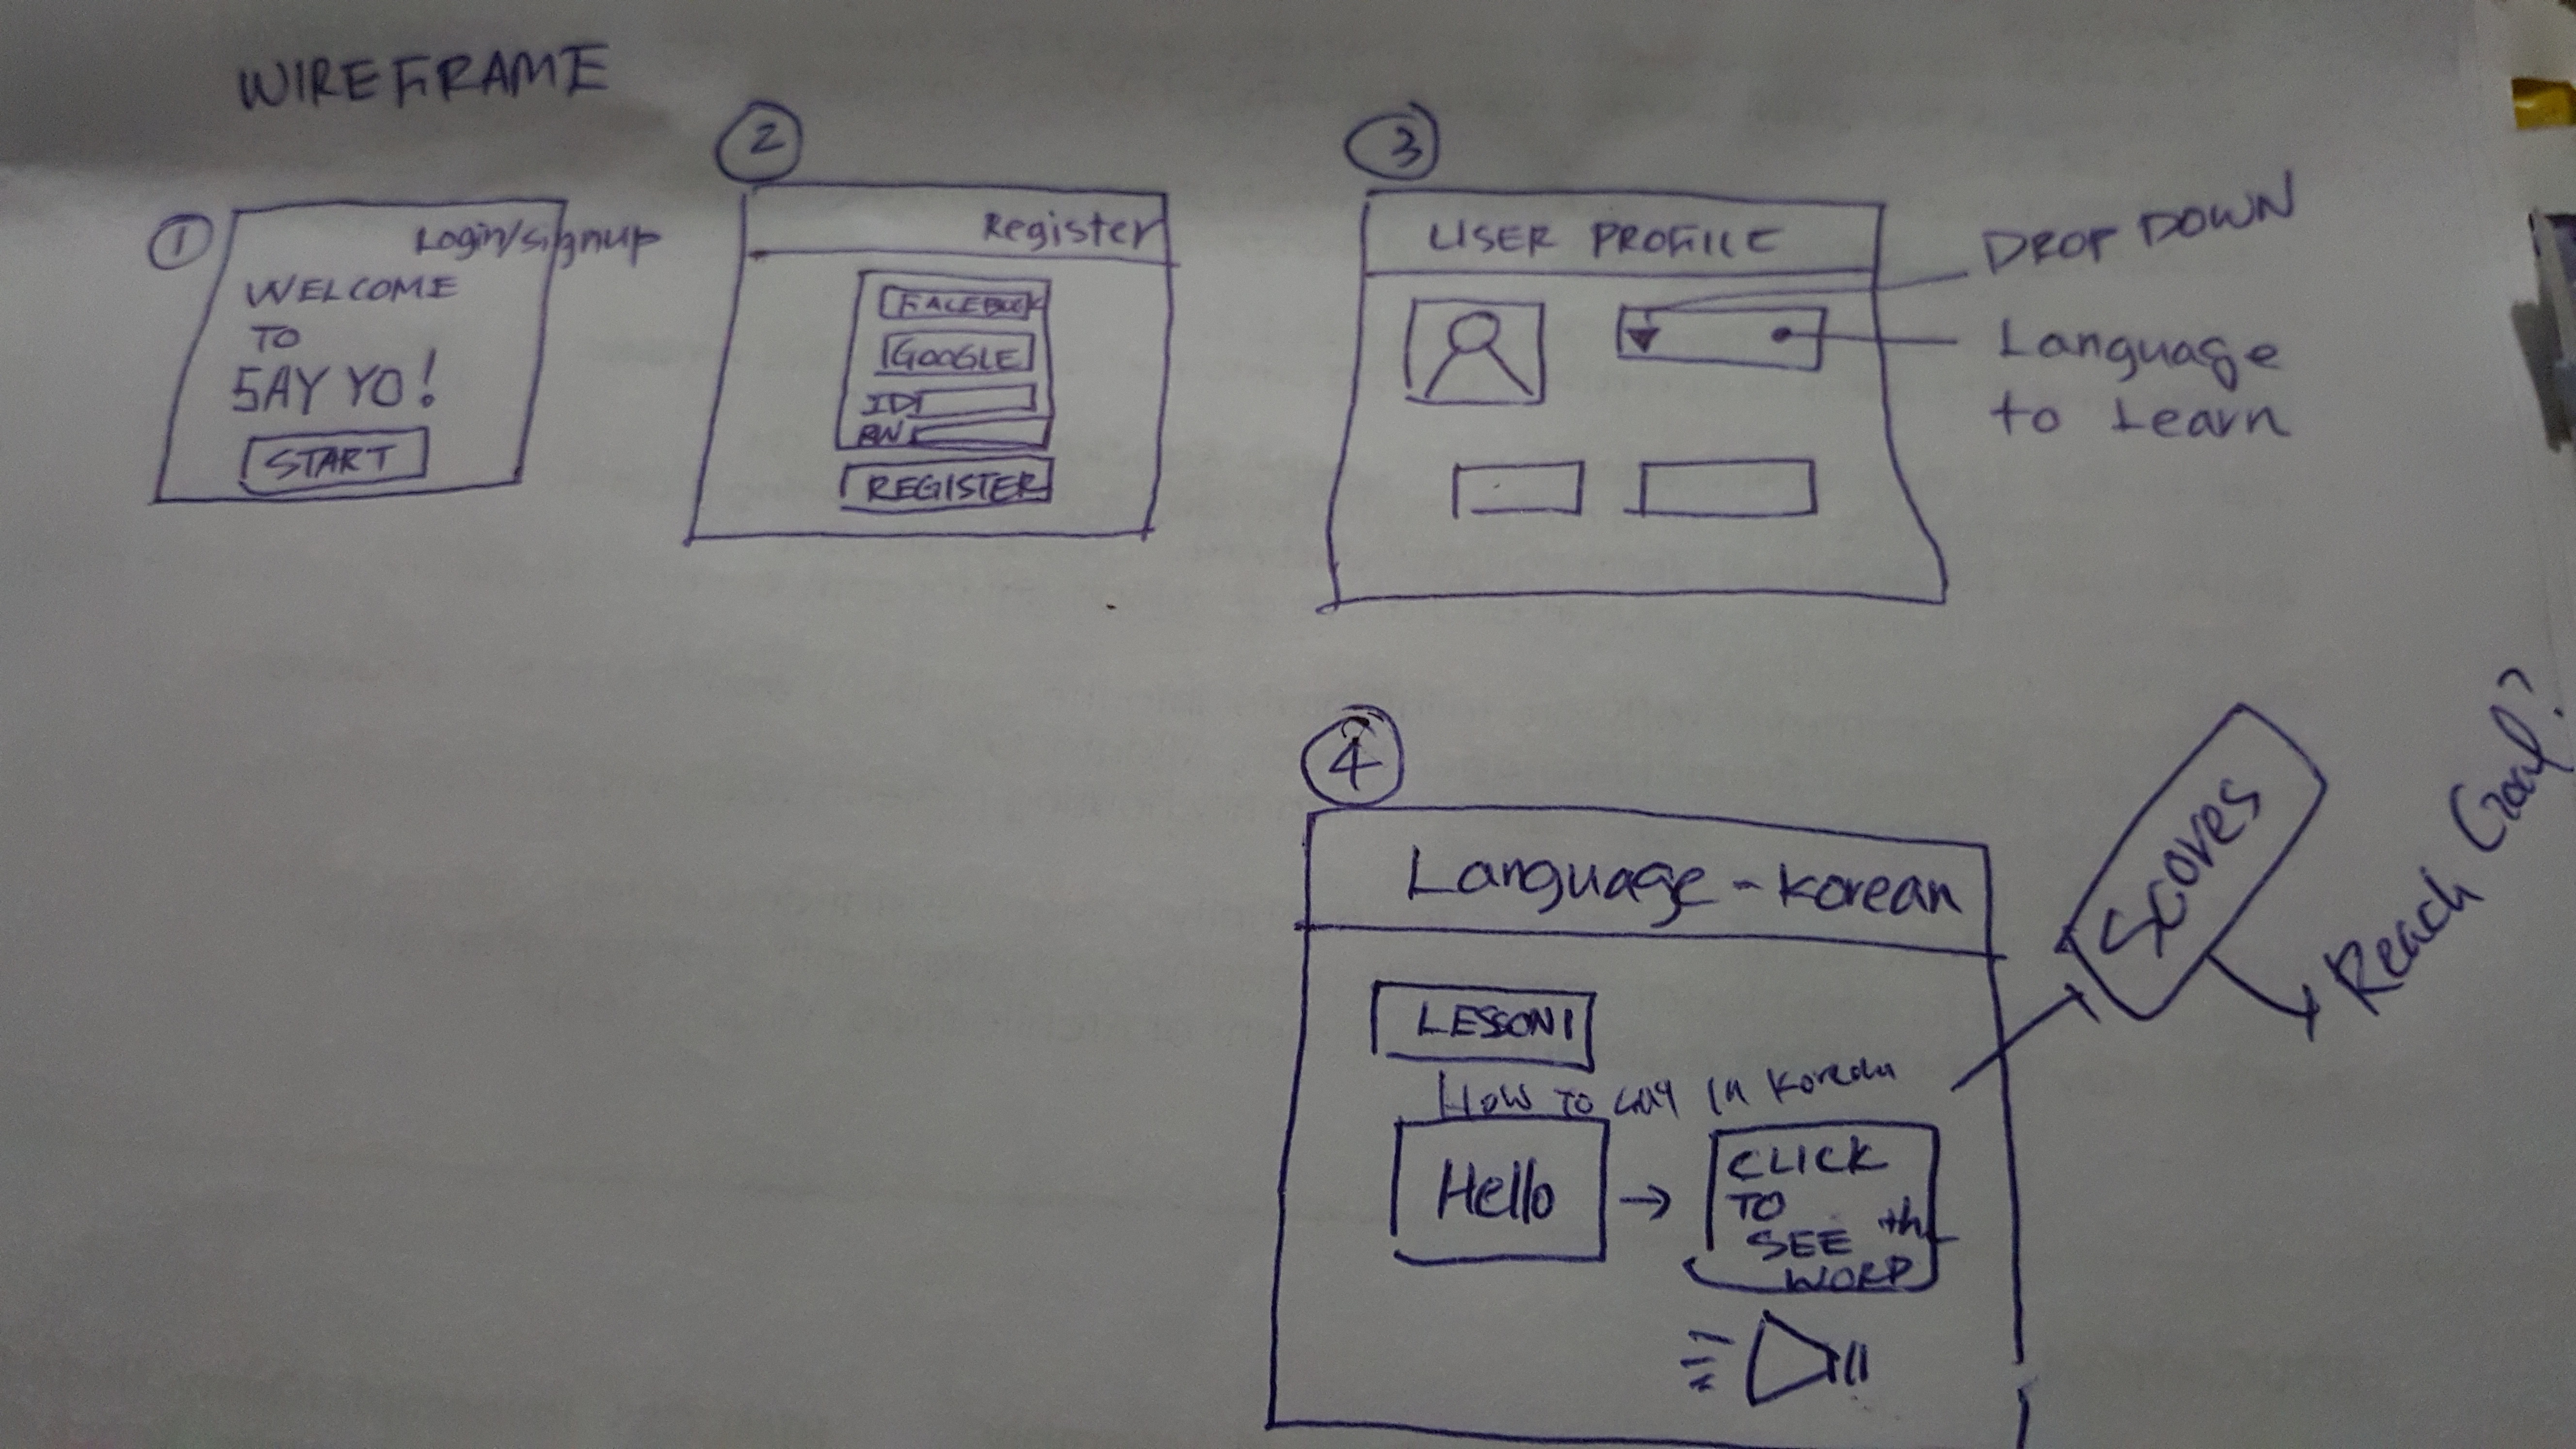 WIREFRAME
1
Login/signup
WELCOME
TO
SAY YO!
START
2
Register
FACEBOOK
GOOGLE
ID
PW
REGISTER
3
USER PROFILE
DROP DOWN
Language
to Learn
4
Language - Korean
LESSON 1
How To say in Korean
Hello
CLICK
TO
SEE the
WORD
Scores
Reach Goal?